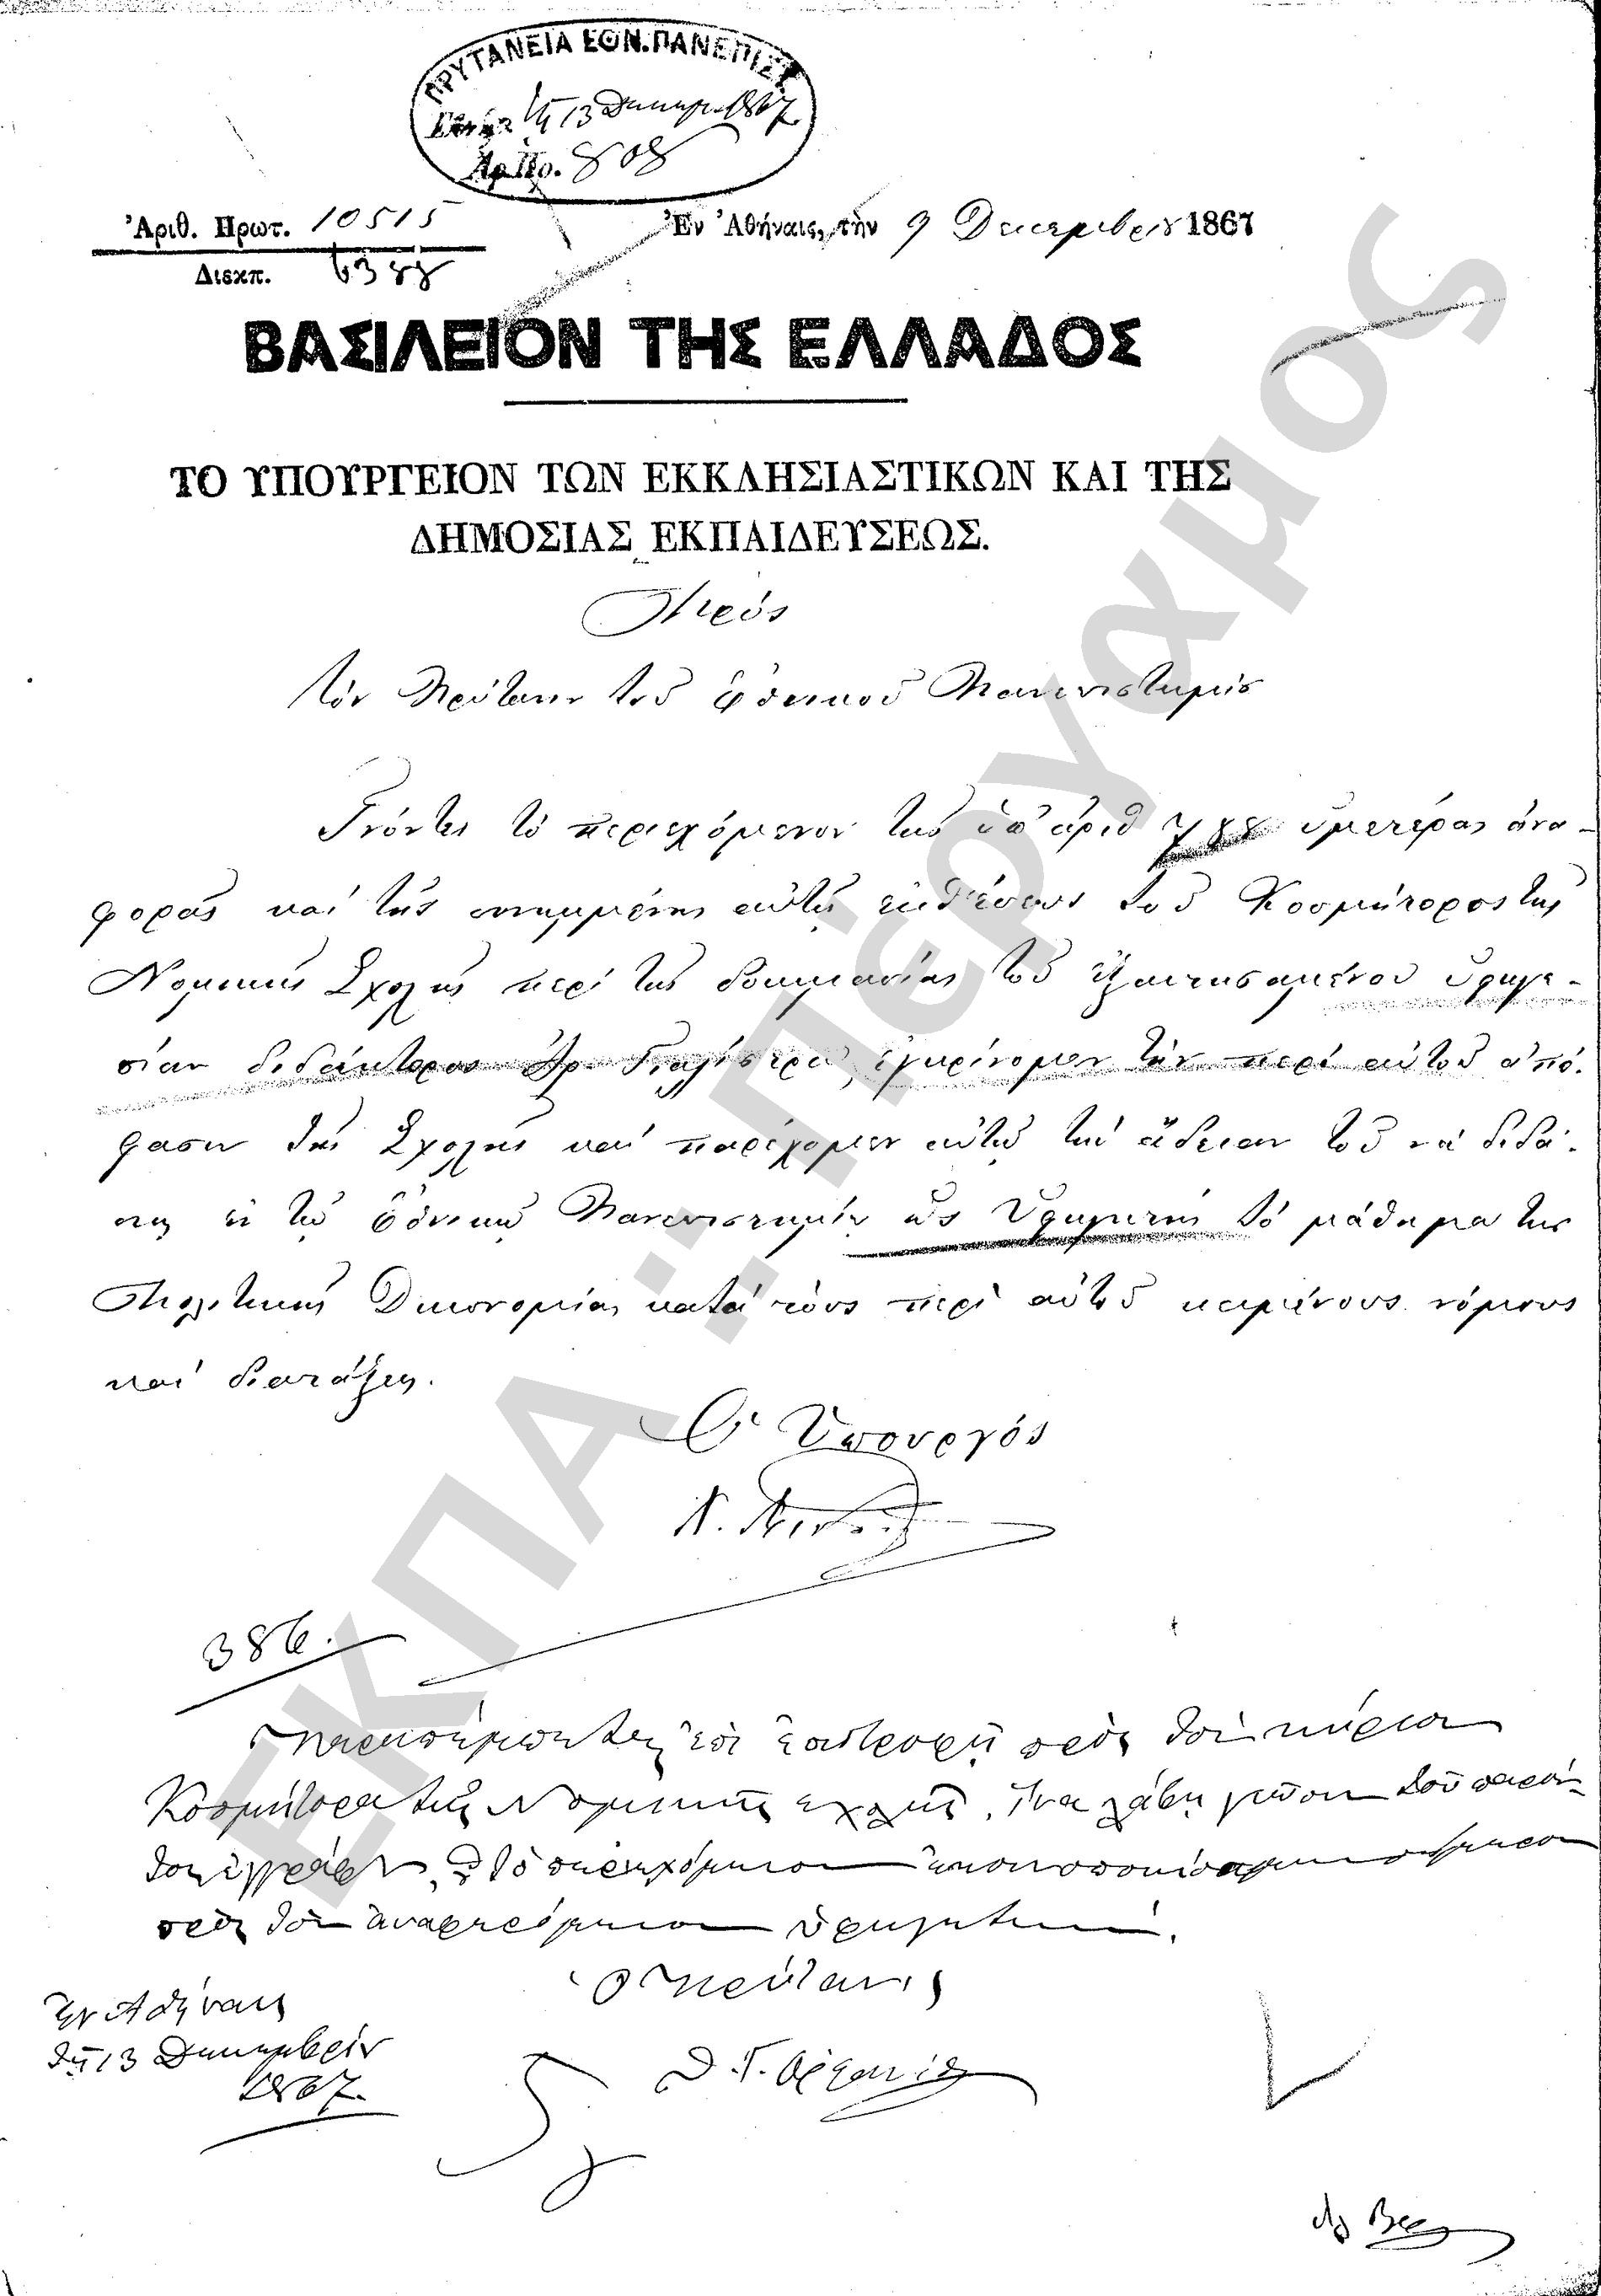 ΠΡΥΤΑΝΕΙΑ ΕΘΝ. ΠΑΝΕΠΙΣΤ
τῇ 13 Δεκεμβρ. 1867
Ἀρ. Πρ. 808
Ἀριθ. Πρωτ. 10515
Ἐν Ἀθήναις, τὴν 9 Δεκεμβρίου 1867
Διεκπ. 6388
ΒΑΣΙΛΕΙΟΝ ΤΗΣ ΕΛΛΑΔΟΣ
ΤΟ ΥΠΟΥΡΓΕΙΟΝ ΤΩΝ ΕΚΚΛΗΣΙΑΣΤΙΚΩΝ ΚΑΙ ΤΗΣ
ΔΗΜΟΣΙΑΣ ΕΚΠΑΙΔΕΥΣΕΩΣ.
Πρὸς
τὸν Πρύτανιν τοῦ Ἐθνικοῦ Πανεπιστημίου
Γνόντες τὸ περιεχόμενον τῆς ὑπ' ἀριθ ὑμετέρας ἀνα-
φορᾶς καὶ τῆς συνημμένης αὐτῇ ἐκθέσεως τοῦ Κοσμήτορος τῆς
Νομικῆς Σχολῆς περὶ τῆς δοκιμασίας τοῦ ἐξαιτησαμένου ὑφηγε-
σίαν διδάκτορος ἐγκρίνομεν τὴν περὶ αὐτοῦ ἀπό-
φασιν τῆς Σχολῆς καὶ παρέχομεν αὐτῷ τὴν ἄδειαν τοῦ νὰ διδά-
σκῃ ἐν τῷ Ἐθνικῷ Πανεπιστημίῳ ὡς Ὑφηγητὴς τὸ μάθημα τῆς
Πολιτικῆς Οἰκονομίας κατὰ τοὺς περὶ αὐτοῦ κειμένους νόμους
καὶ διατάξεις.
Ὁ Ὑπουργός
386.
Παραπέμπεται ἐπὶ ἐπιστροφῇ πρὸς τὸν κύριον
Κοσμήτορα τῆς Νομικῆς Σχολῆς, ἵνα λάβῃ γνῶσιν τοῦ παρόν-
τος ἐγγράφου, τὸ περιεχόμενον
πρὸς τὸν ἀναφερόμενον ὑφηγητήν.
Ὁ Πρύτανις
Ἐν Ἀθήναις
τῇ 13 Δεκεμβρίου
1867
ΕΚΠΑ: Πέργαμος